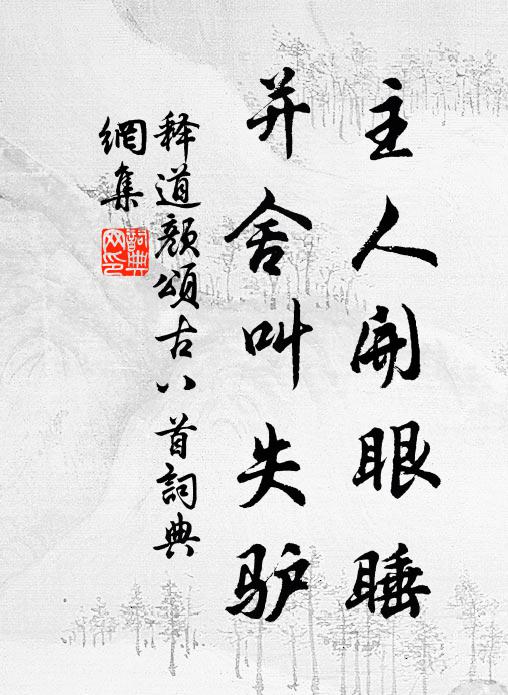 主人開眼睡
并舍叫失驴
释道顏頌古八首詞典
網集
詞典
网印